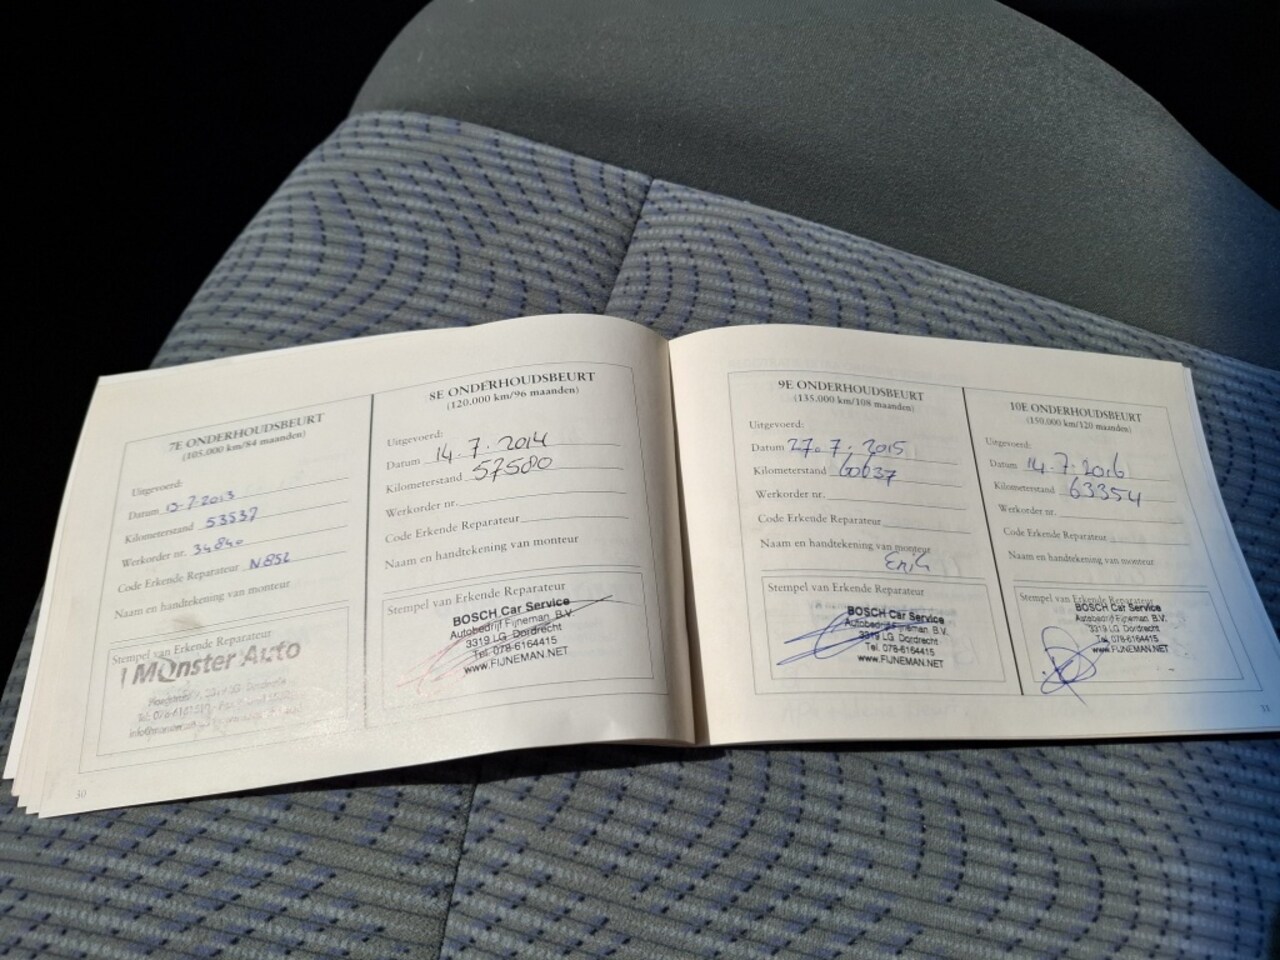 7E ONDERHOUDSBEURT
(105.000 km/84 maanden)
Uitgevoerd:
Datum 15-7-2013
Kilometerstand 53537
Werkorder nr. 34840
Code Erkende Reparateur N852
Naam en handtekening van monteur
Stempel van Erkende Reparateur
Mönster Auto
30
8E ONDERHOUDSBEURT
(120.000 km/96 maanden)
Uitgevoerd:
Datum 14.7.2014
Kilometerstand 57580
Werkorder nr.
Code Erkende Reparateur
Naam en handtekening van monteur
Stempel van Erkende Reparateur
BOSCH Car Service
Autobedrijf Fijneman B.V.
3319 LG Dordrecht
Tel. 078-6164415
www.FIJNEMAN.NET
9E ONDERHOUDSBEURT
(135.000 km/108 maanden)
Uitgevoerd:
Datum 27.7.2015
Kilometerstand 60637
Werkorder nr.
Code Erkende Reparateur
Naam en handtekening van monteur
Erik
Stempel van Erkende Reparateur
BOSCH Car Service
Autobedrijf Fijneman B.V.
3319 LG Dordrecht
Tel. 078-6164415
www.FIJNEMAN.NET
10E ONDERHOUDSBEURT
(150.000 km/120 maanden)
Uitgevoerd:
Datum 14.7.2016
Kilometerstand 63354
Werkorder nr.
Code Erkende Reparateur
Naam en handtekening van monteur
Stempel van Erkende Reparateur
BOSCH Car Service
Autobedrijf Fijneman B.V.
3319 LG Dordrecht
Tel. 078-6164415
www.FIJNEMAN.NET
31